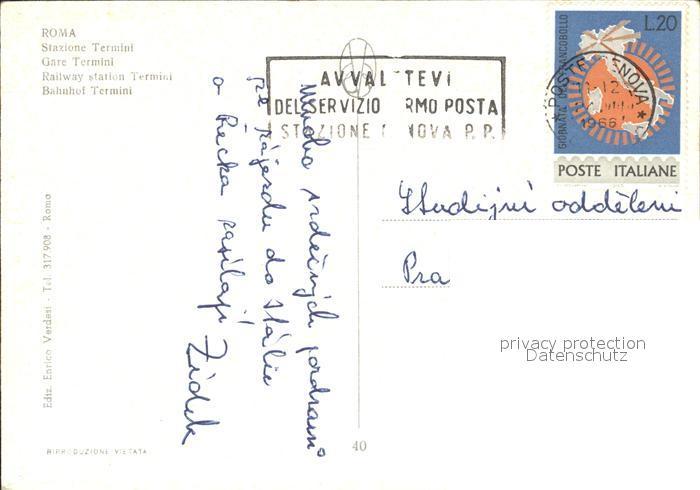 ROMA
Stazione Termini
Gare Termini
Railway station Termini
Bahnhof Termini
Ediz. Enrico Verdesi - Tel. 317.908 - Roma
RIPRODUZIONE VIETATA
40
AVVALETEVI
DEL SERVIZIO FERMO POSTA
STAZIONE GENOVA P.P.
L.20
GIORNATA DEL FRANCOBOLLO
POSTE ITALIANE
POSTE GENOVA
12
1966
Mnoho srdečných pozdravů
ze zájezdu do Itálie
a Řecka zasílají
Židek
Studijní oddělení
Pra
privacy protection
Datenschutz